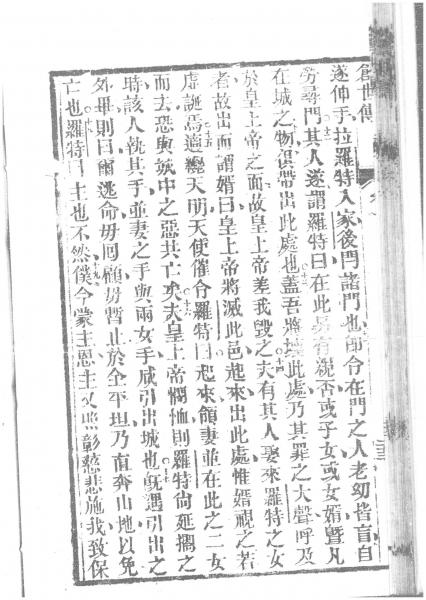 創世傳
遂伸手拉羅特入家後閂諸門也即令在門之人老幼皆盲自
勞尋門其人遂謂羅特曰在此另有親否或子女或女婿曁凡
在城之物俱帶出此處也蓋吾將壞此處乃其罪之大聲呼及
於皇上帝之面故皇上帝差我毀之夫有其人娶來羅特之女
者故出而謂婿曰皇上帝將滅此邑起來出此處惟婿視之若
虛誕焉適纔天明天使催令羅特曰起來領妻並在此之二女
而去恐與城中之惡共亡矣夫皇上帝憫恤則羅特尙延擱之
時該人執其手並妻之手與兩女手咸引出城也旣遇引出之
外畢則曰爾逃命毋回顧毋暫止於全平坦乃直奔山地以免
亡也羅特曰主也不然僕今蒙主恩主又照彰慈悲施我致保